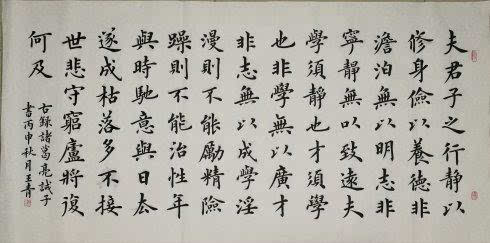 夫君子之行靜以
修身儉以養德非
澹泊無以明志非
寧靜無以致遠夫
學須靜也才須學
也非學無以廣才
非志無以成學淫
漫則不能勵精險
躁則不能治性年
與時馳意與日去
遂成枯落多不接
世悲守窮廬將復
何及
古錄諸葛亮誡子
書丙申秋月王青